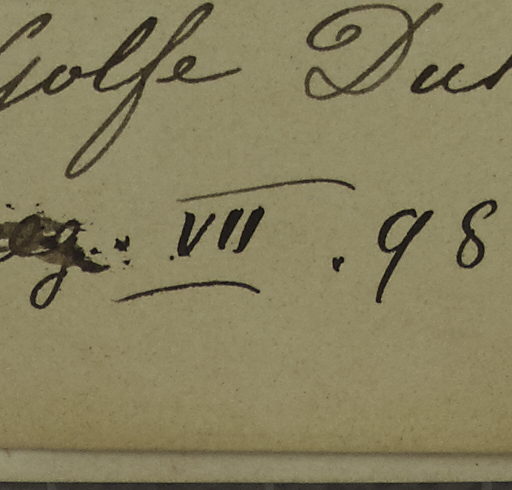 Golfe Dus
leg. VII . 98